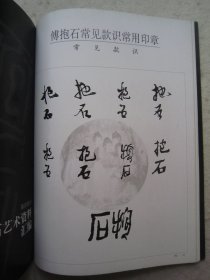 傅抱石常见款识常用印章
常见款识
抱石 抱石 抱石 抱石
抱石 抱石 抱石 抱石
抱石
艺术资料
汇编